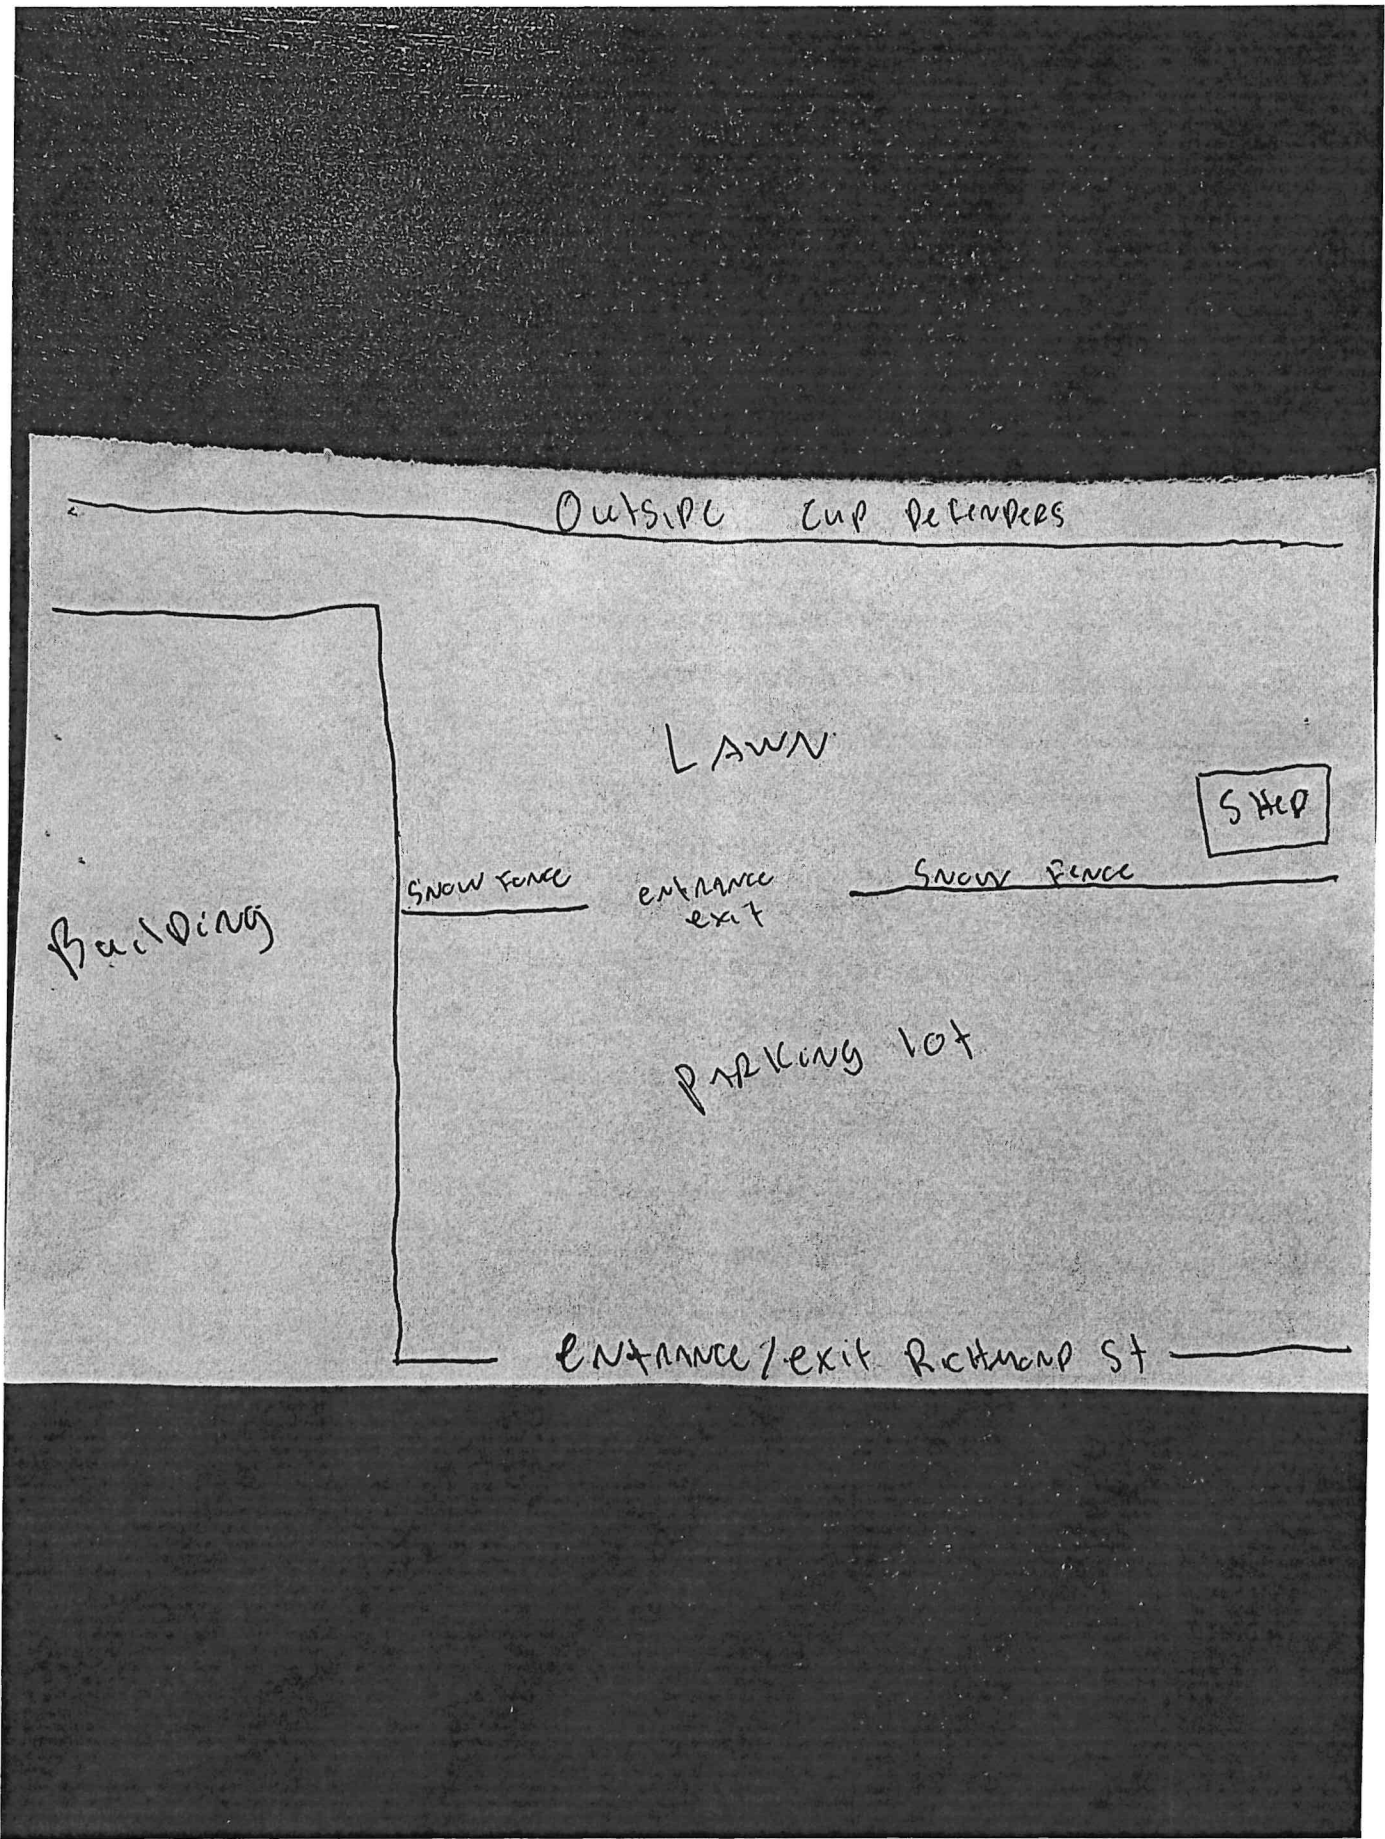 Outside Cup Defenders
Lawn
Shed
Snow Fence
entrance
exit
Snow Fence
Building
Parking lot
entrance/exit Richmond St